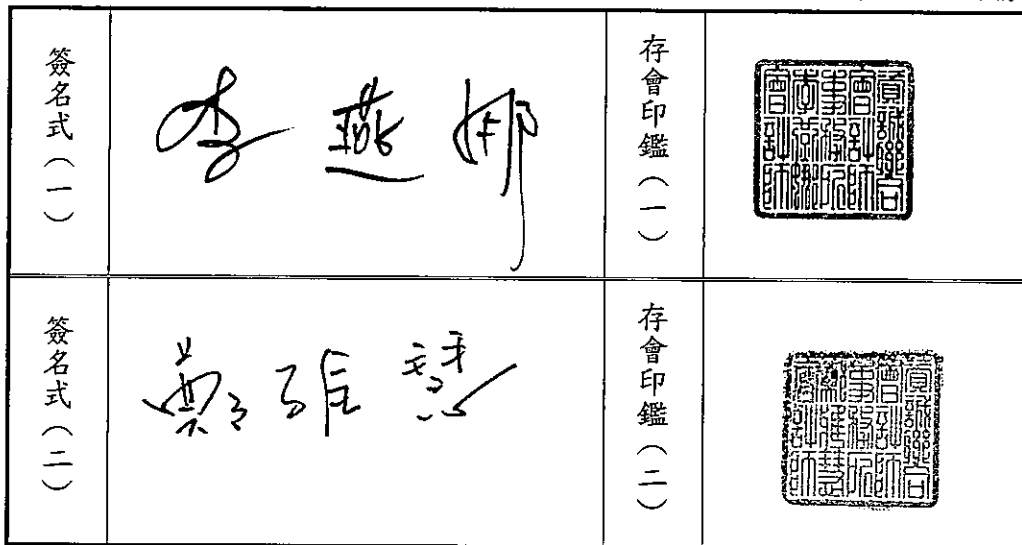 簽名式(一)
李燕娜
存會印鑑(一)
貞誠聯合
會計師
事務所
李燕娜
會計師
簽名式(二)
鄭雅慧
存會印鑑(二)
貞誠聯合
會計師
事務所
鄭雅慧
會計師